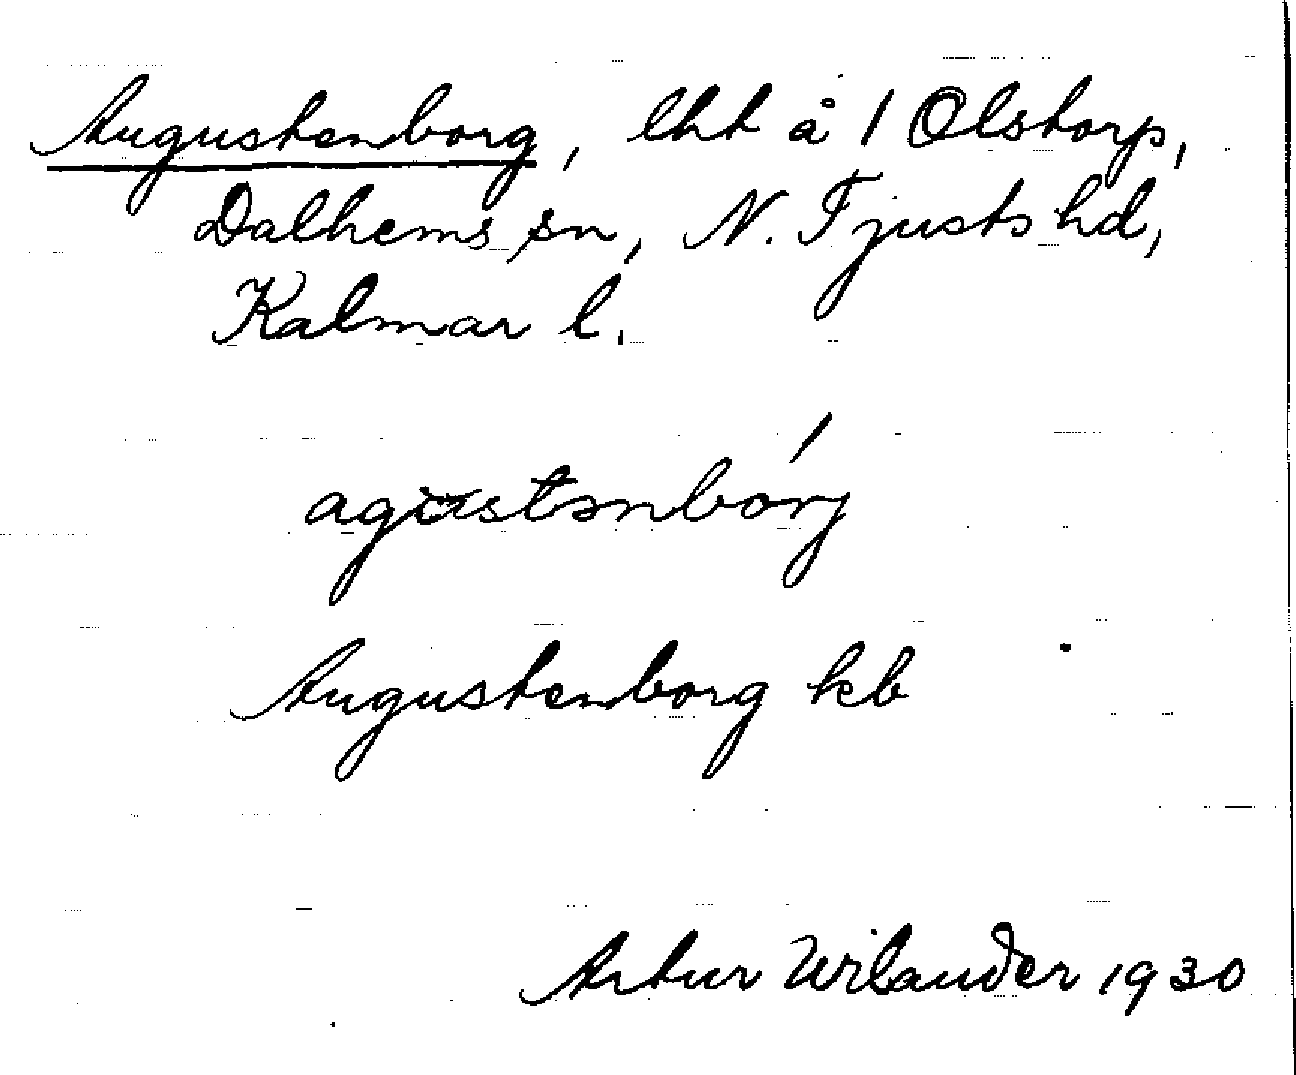 Augustenborg, lht å 1 Olstorp,
Dalhems sn, N. Tjusts hd,
Kalmar l.
agustənbórj
Augustenborg kb
Artur Wilander 1930